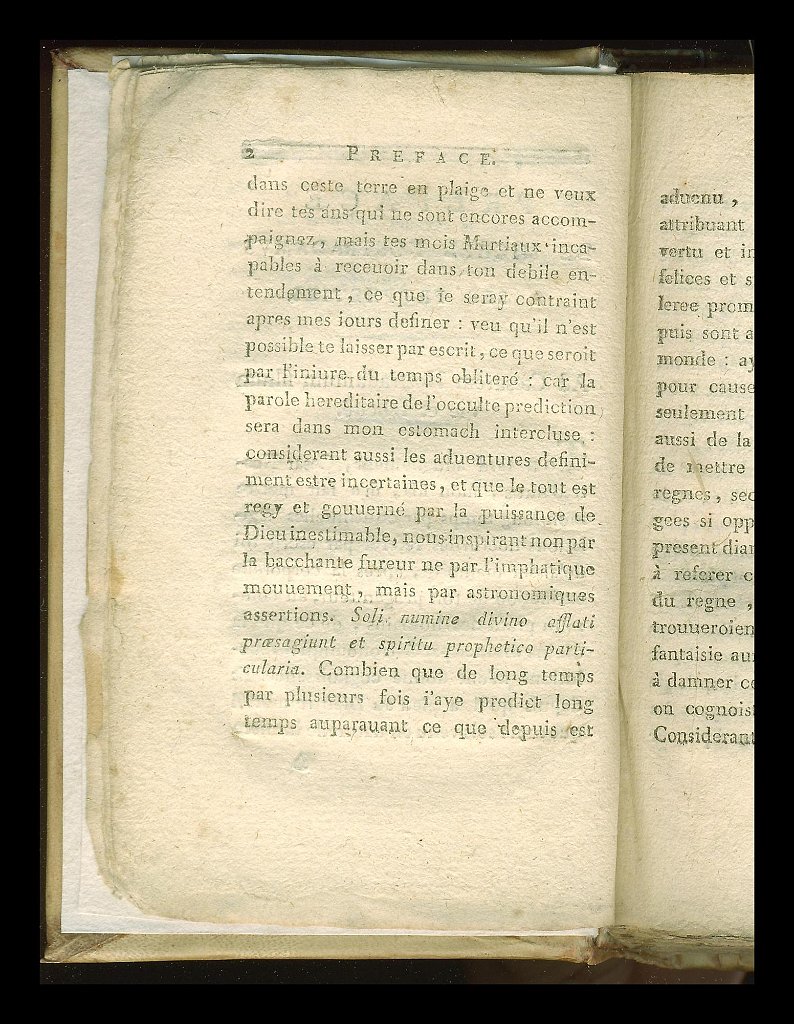 2 PREFACE.
dans ceste terre en plaige et ne veux
dire tes ans qui ne sont encores accom-
paignez, mais tes mois Martiaux inca-
pables à receuoir dans ton debile en-
tendement, ce que ie seray contraint
apres mes iours definer : veu qu'il n'est
possible te laisser par escrit, ce que seroit
par l'iniure du temps obliteré : car la
parole hereditaire de l'occulte prediction
sera dans mon estomach intercluse :
considerant aussi les aduentures defini-
ment estre incertaines, et que le tout est
regy et gouuerné par la puissance de
Dieu inestimable, nous inspirant non par
la bacchante fureur ne par l'imphatique
mouuement, mais par astronomiques
assertions. Soli numine divino afflati
præsagiunt et spiritu prophetico parti-
cularia. Combien que de long temps
par plusieurs fois i'aye predict long
temps auparauant ce que depuis est
aduenu,
attribuant
vertu et in
felices et s
leree prom
puis sont a
monde : ay
pour cause
seulement
aussi de la
de mettre
regnes, sec
gees si opp
present diam
à referer c
du regne,
trouueroien
fantaisie au
à damner ce
on cognois
Considerant